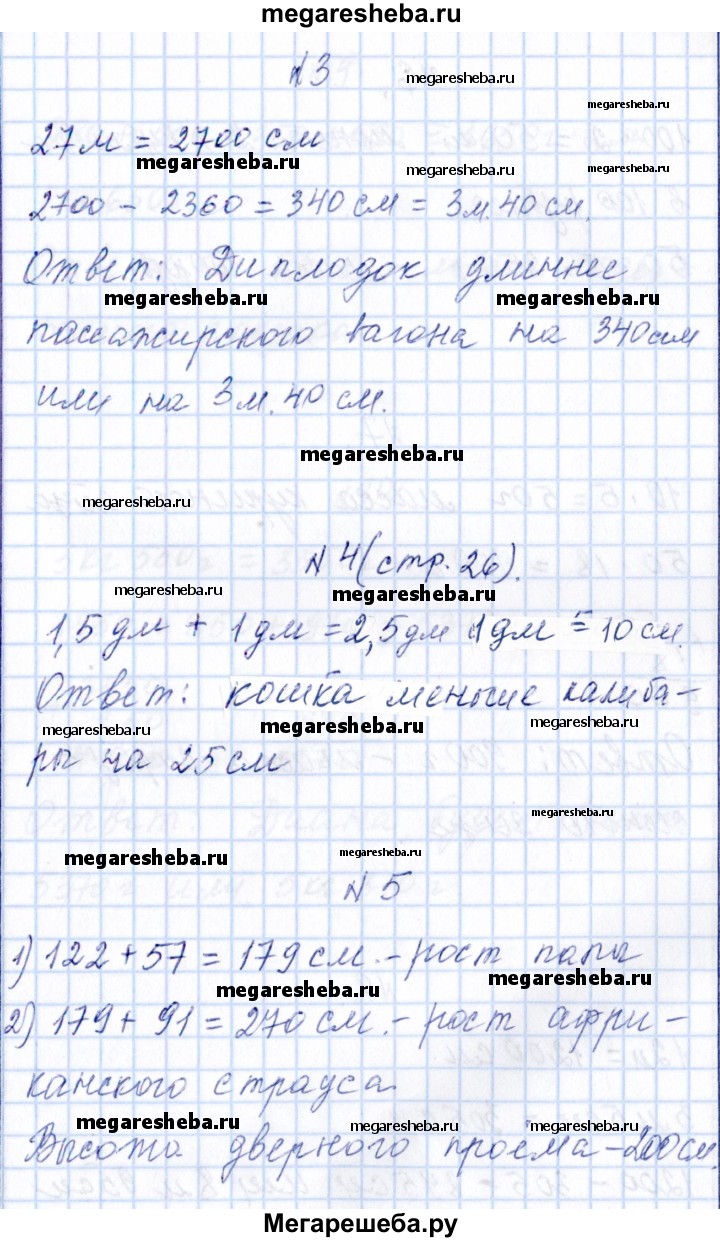 megaresheba.ru
№3
megaresheba.ru
megaresheba.ru
27 м = 2700 см
megaresheba.ru
megaresheba.ru
2700 - 2360 = 340 см = 3 м. 40 см.
Ответ: Диплодок длиннее
megaresheba.ru
megaresheba.ru
пассажирского вагона на 340 см
или на 3 м. 40 см.
megaresheba.ru
megaresheba.ru
№ 4 (стр. 26).
megaresheba.ru
megaresheba.ru
1,5 дм + 1 дм = 2,5 дм 1 дм = 10 см.
Ответ: кошка меньше капиба-
megaresheba.ru
megaresheba.ru
megaresheba.ru
ры на 25 см
megaresheba.ru
megaresheba.ru
megaresheba.ru
№ 5
1) 122 + 57 = 179 см. - рост папы
megaresheba.ru
megaresheba.ru
2) 179 + 91 = 270 см. - рост афри-
канского страуса.
megaresheba.ru
megaresheba.ru
megaresheba.ru
Высота дверного проёма - 200 см.
Мегарешеба.ру